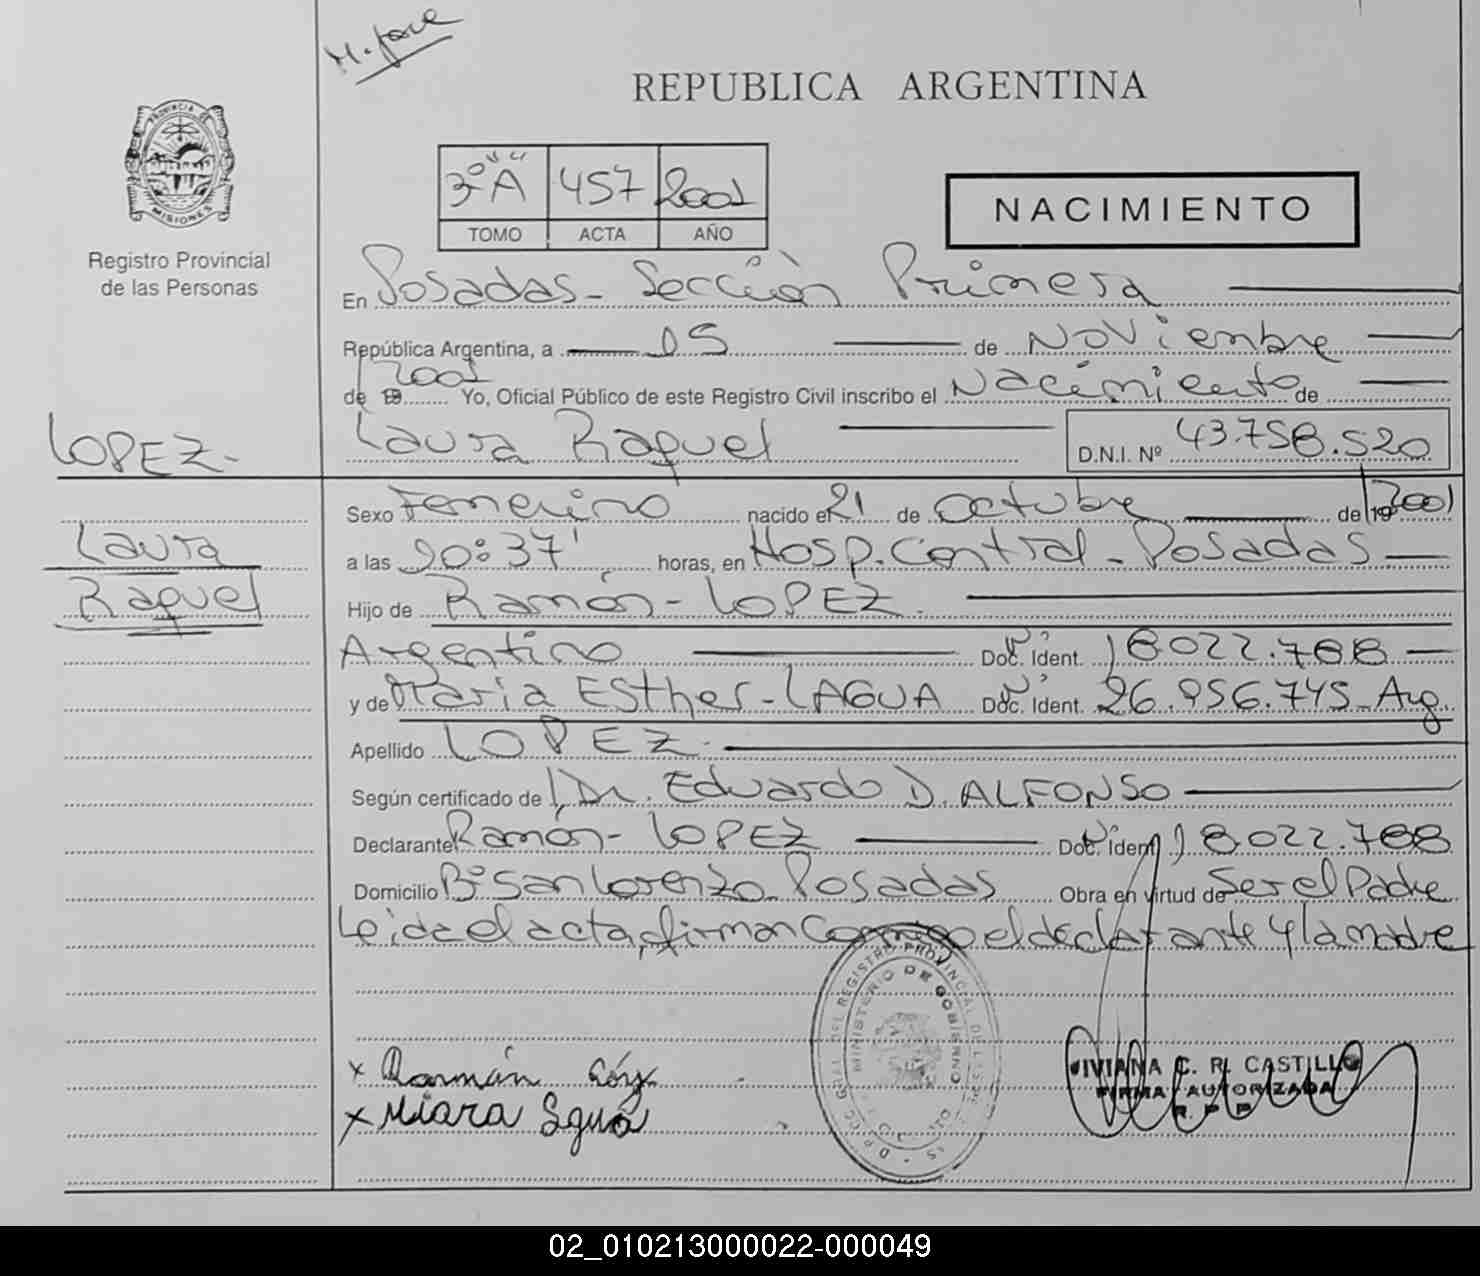 M. Jose
REPUBLICA ARGENTINA
PROVINCIA DE MISIONES
Registro Provincial
de las Personas
3º "A" 457 2001
TOMO ACTA AÑO
NACIMIENTO
En Posadas - Sección Primera
República Argentina, a 05 de Noviembre
de 19 2001 Yo, Oficial Público de este Registro Civil inscribo el Nacimiento de
Laura Raquel D.N.I. Nº 43.758.520
LOPEZ.-
Laura
Raquel
Sexo Femenino nacido el 21 de Octubre de 19 2001
a las 20:37' horas, en Hosp. Central - Posadas
Hijo de Ramón - LOPEZ.
Argentino Doc. Ident. 18.022.788
y de Maria Esther - LAGUA Doc. Ident. 26.956.745 - Arg.
Apellido LOPEZ.
Según certificado de Dr. Eduardo D. ALFONSO
Declarante Ramón - LOPEZ Doc. Ident. 18.022.788
Domicilio Bº San Lorenzo - Posadas Obra en virtud de Ser el Padre
Leida el acta, firman Conmigo el declarante y la madre
x Rammán
x Miara
REGISTRO PROVINCIAL DE LAS
MINISTERIO DE GOBIERNO
VIVIANA C. R. CASTILLO
FIRMA AUTORIZADA
R. P. P.
02_010213000022-000049